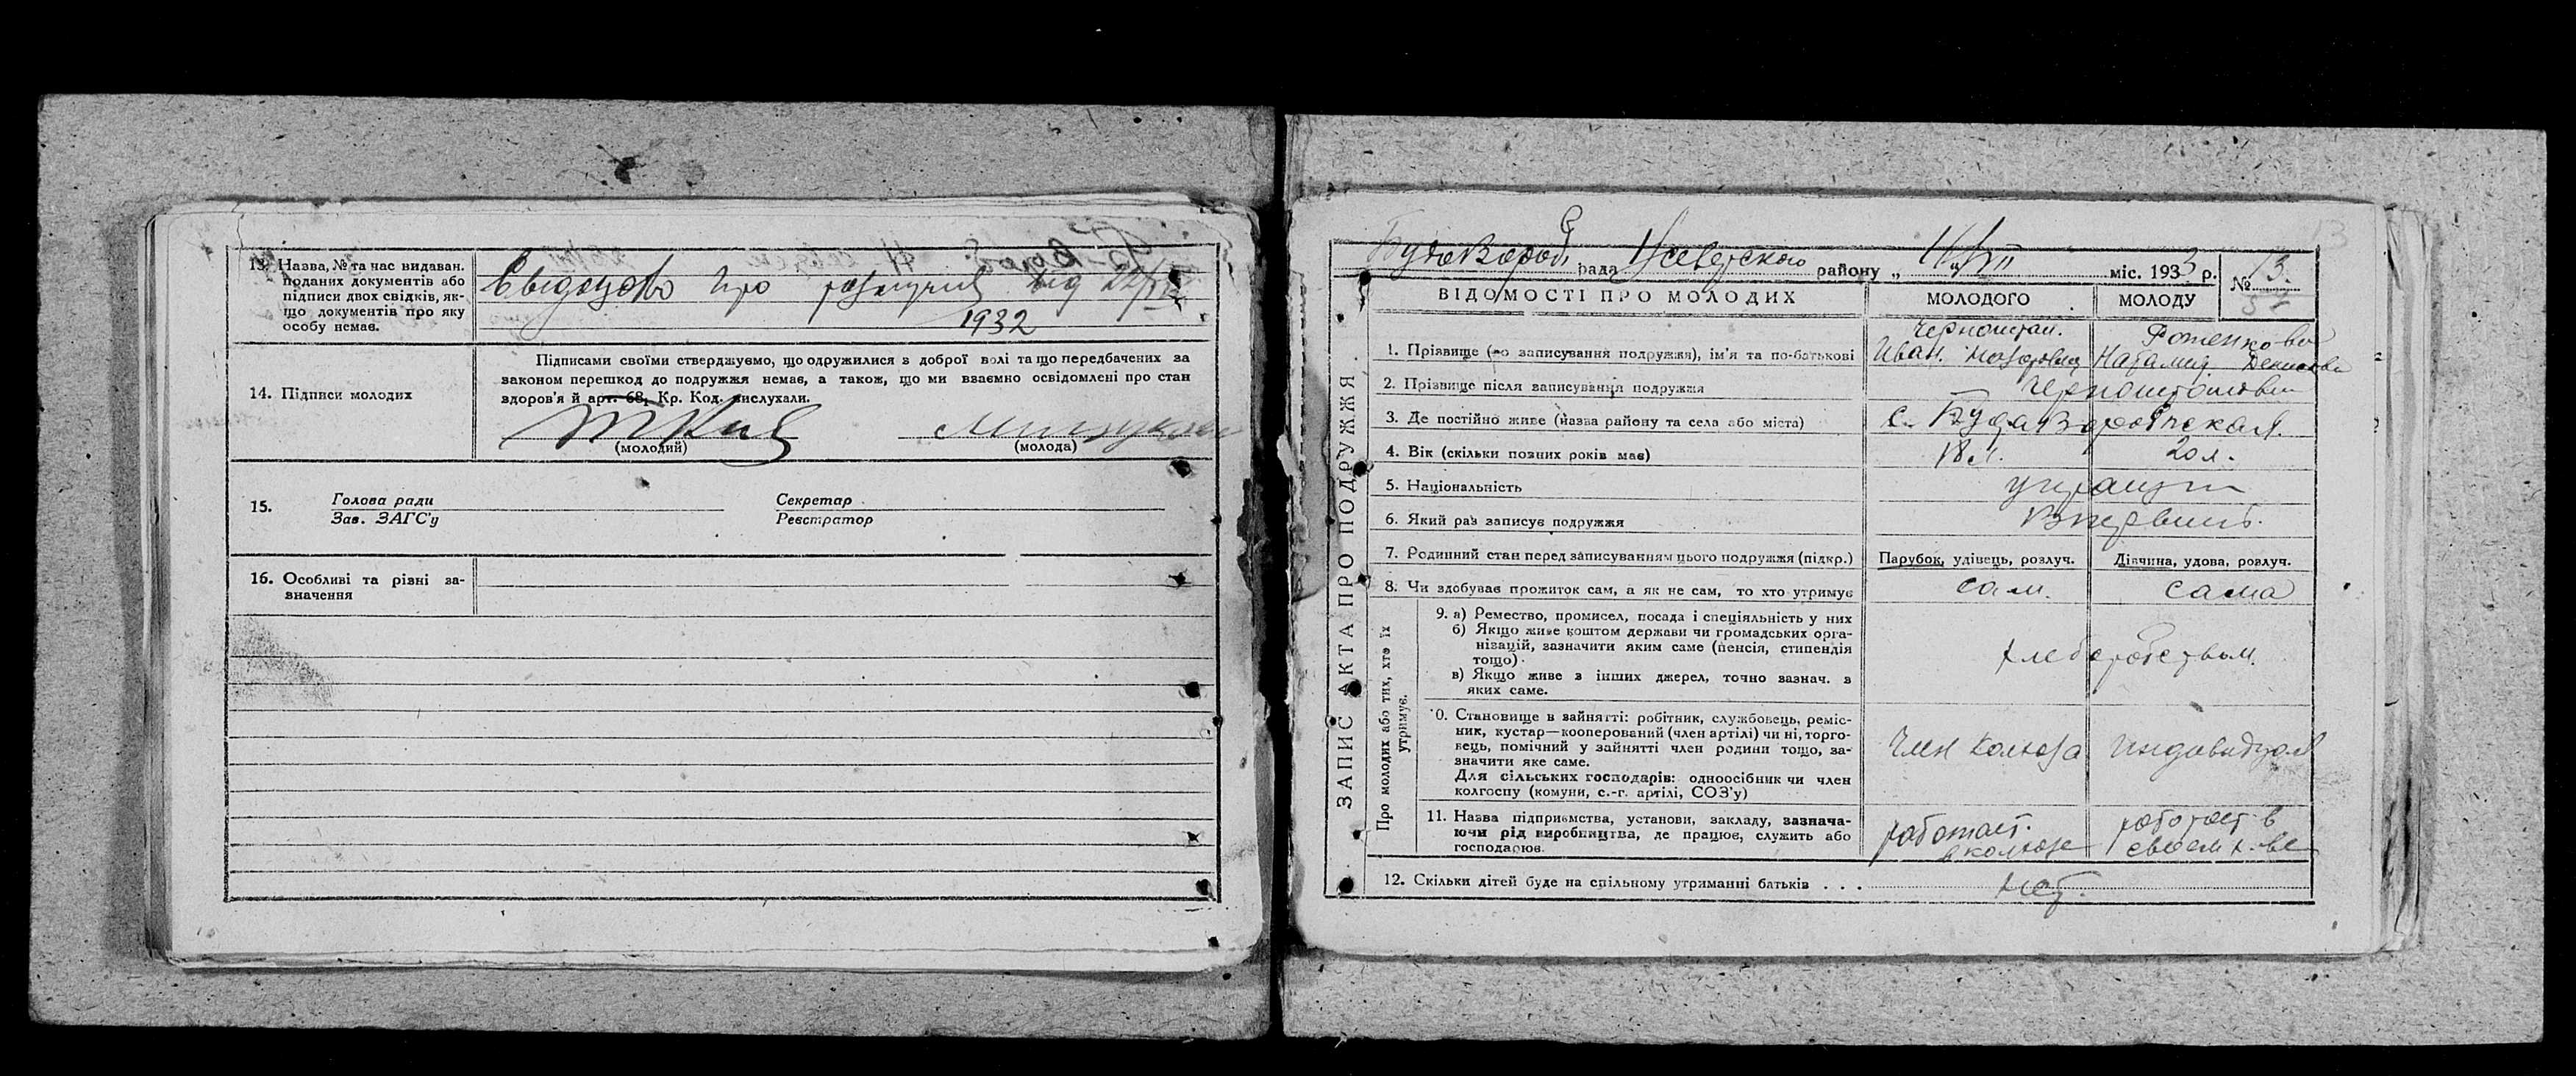 13. Назва, № та час видаван.
поданих документів або
підписи двох свідків, як-
що документів про яку
особу немає.
Свидоцтво про розлучив від 22/
1932
14. Підписи молодих
Підписами своїми стверджуємо, що одружилися з доброї волі та що передбачених за
законом перешкод до подружжя немає, а також, що ми взаємно освідомлені про стан
здоров'я й арт. 68, Кр. Код. вислухали.
(молодий)
(молода)
15.
Голова ради
Секретар
Зав. ЗАГС'у
Реєстратор
16. Особливі та різні за-
значення
ЗАПИС АКТА ПРО ПОДРУЖЖЯ
рада
району „ міс. 1933 р.
№ 13
ВІДОМОСТІ ПРО МОЛОДИХ
МОЛОДОГО
МОЛОДУ
1. Прізвище (до записування подружжя), ім'я та по-батькові
Иван
2. Прізвище після записування подружжя
3. Де постійно живе (назва району та села або міста)
с. Буда Воробьевская
4. Вік (скільки повних років має)
18 л.
20 л.
5. Національність
6. Який раз записує подружжя
7. Родинний стан перед записуванням цього подружжя (підкр.)
Парубок, удівець, розлуч.
Дівчина, удова, розлуч.
8. Чи здобуває прожиток сам, а як не сам, то хто утримує
сам.
сама
Про молодих або тих, хто їх
утримує.
9. а) Ремество, промисел, посада і спеціяльність у них
б) Якщо живе коштом держави чи громадських орга-
нізацій, зазначити яким саме (пенсія, стипендія
тощо).
в) Якщо живе з інших джерел, точно зазнач. з
яких саме.
10. Становище в зайнятті: робітник, службовець, реміс-
ник, кустар—кооперований (член артілі) чи ні, торго-
вець, помічний у зайнятті член родини тощо, за-
значити яке саме.
Для сільських господарів: одноосібник чи член
колгоспу (комуни, с.-г. артілі, СОЗ'у)
Член колхоза
11. Назва підприємства, установи, закладу, зазнача-
ючи рід виробництва, де працює, служить або
господарює.
работает
в колхозе
работает в
своем х-ве
12. Скільки дітей буде на спільному утриманні батьків . . .
нет.